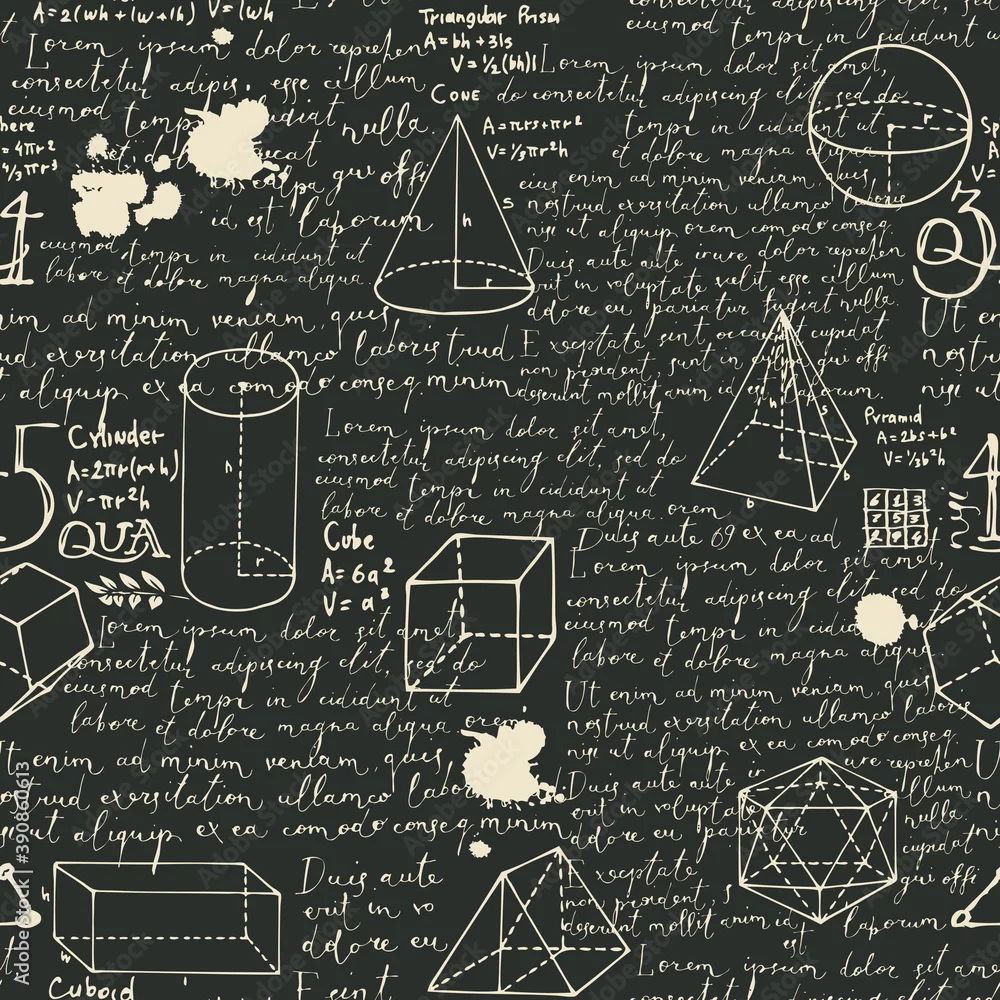 A=2(wh+lw+lh) V=lwh
Triangular Prism
A=bh+3ls
V=½(bh)l
Lorem ipsum dolor reprehen
consectetur adipis, esse cillum
eiusmod tempi
nulla.
gui offi
id est laborum
eiusmod tempi in cididunt ut
labore et dolore magna aliqua
eiusmod tempi in cididunt ut
Lorem ipsum dolor sit amet,
do consectetur adipiscing elit, sed do
tempi in cididunt ut
et dolore magna aliqua
enim ad minim veniam, quis
nostrud exorsitation ullamco laboris
nisi ut aliquip orem comodo conseq.
Duis aute aute irure dolor reprehen
erit in voluptate velit esse cillum
dolore eu pariatur fugiat nulla.
Exceptate sint occaecat cupidat
non proident, sunt in culpa qui offi
deserunt mollit anim id est laborum.
Cone
A=πrs+πr²
V=⅓πr²h
h
s
r
here
=4πr²
4/3πr³
r
Sp
A
V=
4
3
Q
nim ad minim veniam, quis
ud exorsitation ullamco laboris trud
t aliquip ex ea comodo conseq. minim
Ut en
nostru
nisi ut
5
Cylinder
A=2πr(r+h)
V-πr²h
QUA
h
r
Lorem ipsum dolor sit amet,
consectetur adipiscing elit, sed do
eiusmod tempi in cididunt ut
labore et dolore magna aliqua. orem
Pyramid
A=2bs+b²
V=⅓b²h
h
s
b
b
4
Cube
A=6a²
V=a³
Duis aute 69 ex ea ad
Lorem ipsum dolor sit amet,
consectetur adipiscing elit, sed do
eiusmod tempi in cididu
labore et dolore magna aliqua.
Ut enim ad minim veniam, quis
nostrud exorsitation ullamco laboris
nisi ut aliquip ex ea comodo conseq.
Duis aute aute ir
ure reprehen
erit in voluptate
illum
dolore eu pariatur
nulla.
Excepteate
cupidat
non proident, s
qui offi
deserunt mollit anim id
est
laborum
Lorem ipsum dolor sit amet,
consectetur adipiscing elit, sed do
eiusmod tempi in cididunt ut
labore et dolore magna aliqua orem
Ut enim ad minim veniam, quis
nostrud exorsitation ullamco labo
ut aliquip ex ea comodo conseq. minim
h
w
l
Cuboid
Duis aute
erit in vo
dolore eu
E sint
Lorem ipsum dolor sit amet,
consectetur adipiscing elit, sed do
Adobe Stock | #390860613
Adobe Stock